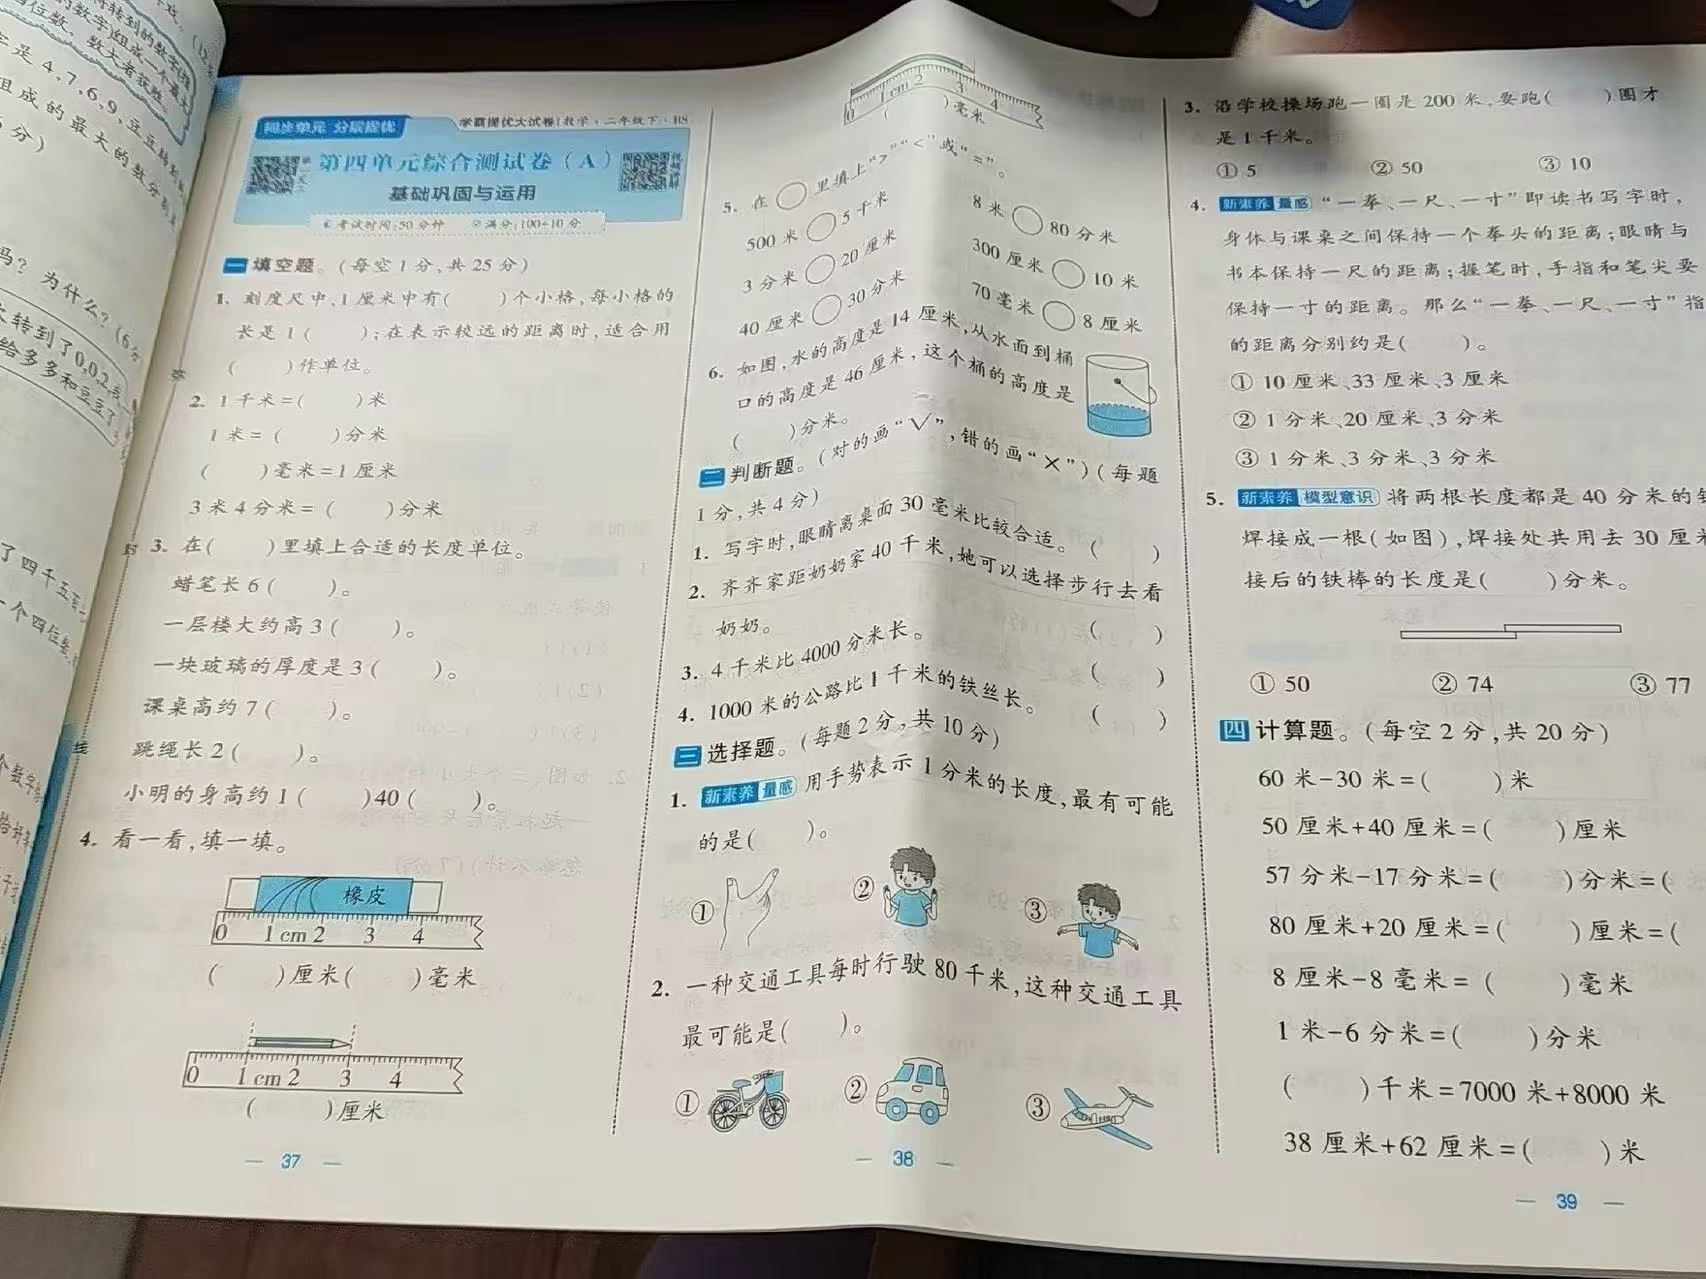 4,7,6,9,豆豆
组成的最大的数
分)
吗？为什么？(6分
转到了0,0,2
给多多和豆豆
封
线
同步单元 分层提优
学霸提优大试卷 数学·二年级下·BS
第四单元综合测试卷(A)
基础巩固与运用
考试时间:50分钟 满分:100+10分
一 填空题。(每空1分,共25分)
1. 刻度尺中,1厘米中有( )个小格,每小格的
长是1( );在表示较远的距离时,适合用
( )作单位。
2. 1千米=( )米
1米=( )分米
( )毫米=1厘米
3米4分米=( )分米
3. 在( )里填上合适的长度单位。
蜡笔长6( )。
一层楼大约高3( )。
一块玻璃的厚度是3( )。
课桌高约7( )。
跳绳长2( )。
小明的身高约1( )40( )。
4. 看一看,填一填。
橡皮
0 1cm 2 3 4
( )厘米( )毫米
0 1cm 2 3 4
( )厘米
37
0 1cm 2 3 4
( )毫米
5. 在○里填上“>”“<”或“=”。
500米○5千米 8米○80分米
3分米○20厘米 300厘米○10米
40厘米○30分米 70毫米○8厘米
6. 如图,水的高度是14厘米,从水面到桶
口的高度是46厘米,这个桶的高度是
( )分米。
二 判断题。(对的画“√”,错的画“×”)(每题
1分,共4分)
1. 写字时,眼睛离桌面30毫米比较合适。( )
2. 齐齐家距奶奶家40千米,她可以选择步行去看
奶奶。 ( )
3. 4千米比4000分米长。 ( )
4. 1000米的公路比1千米的铁丝长。 ( )
三 选择题。(每题2分,共10分)
1. 新素养 量感 用手势表示1分米的长度,最有可能
的是( )。
① ② ③
2. 一种交通工具每时行驶80千米,这种交通工具
最可能是( )。
① ② ③
38
3. 沿学校操场跑一圈是200米,要跑( )圈才
是1千米。
①5 ②50 ③10
4. 新素养 量感 “一拳、一尺、一寸”即读书写字时,
身体与课桌之间保持一个拳头的距离;眼睛与
书本保持一尺的距离;握笔时,手指和笔尖要
保持一寸的距离。那么“一拳、一尺、一寸”指
的距离分别约是( )。
①10厘米、33厘米、3厘米
②1分米、20厘米、3分米
③1分米、3分米、3分米
5. 新素养 模型意识 将两根长度都是40分米的
焊接成一根(如图),焊接处共用去30厘米
接后的铁棒的长度是( )分米。
①50 ②74 ③77
四 计算题。(每空2分,共20分)
60米-30米=( )米
50厘米+40厘米=( )厘米
57分米-17分米=( )分米=(
80厘米+20厘米=( )厘米=(
8厘米-8毫米=( )毫米
1米-6分米=( )分米
( )千米=7000米+8000米
38厘米+62厘米=( )米
39